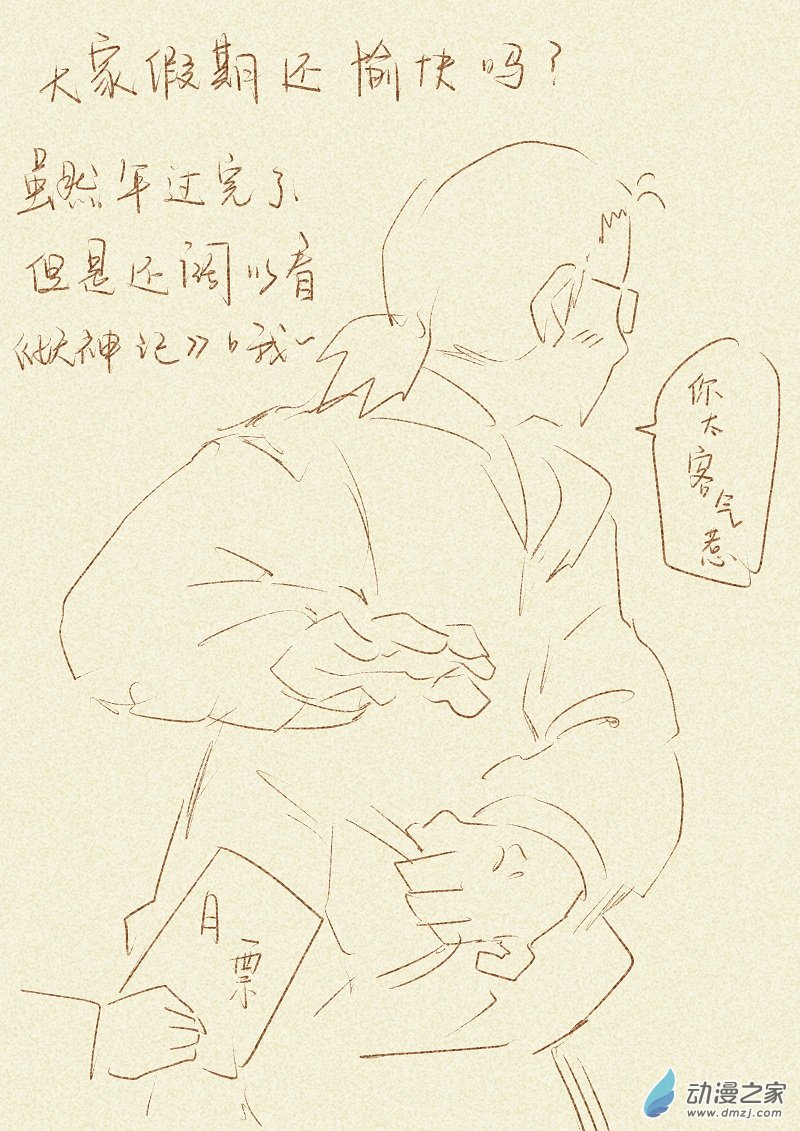 大家假期还愉快吗？
虽然年过完了
但是还可以看
《妖神记》哦~
你太客气惹
月票
动漫之家
www.dmzj.com